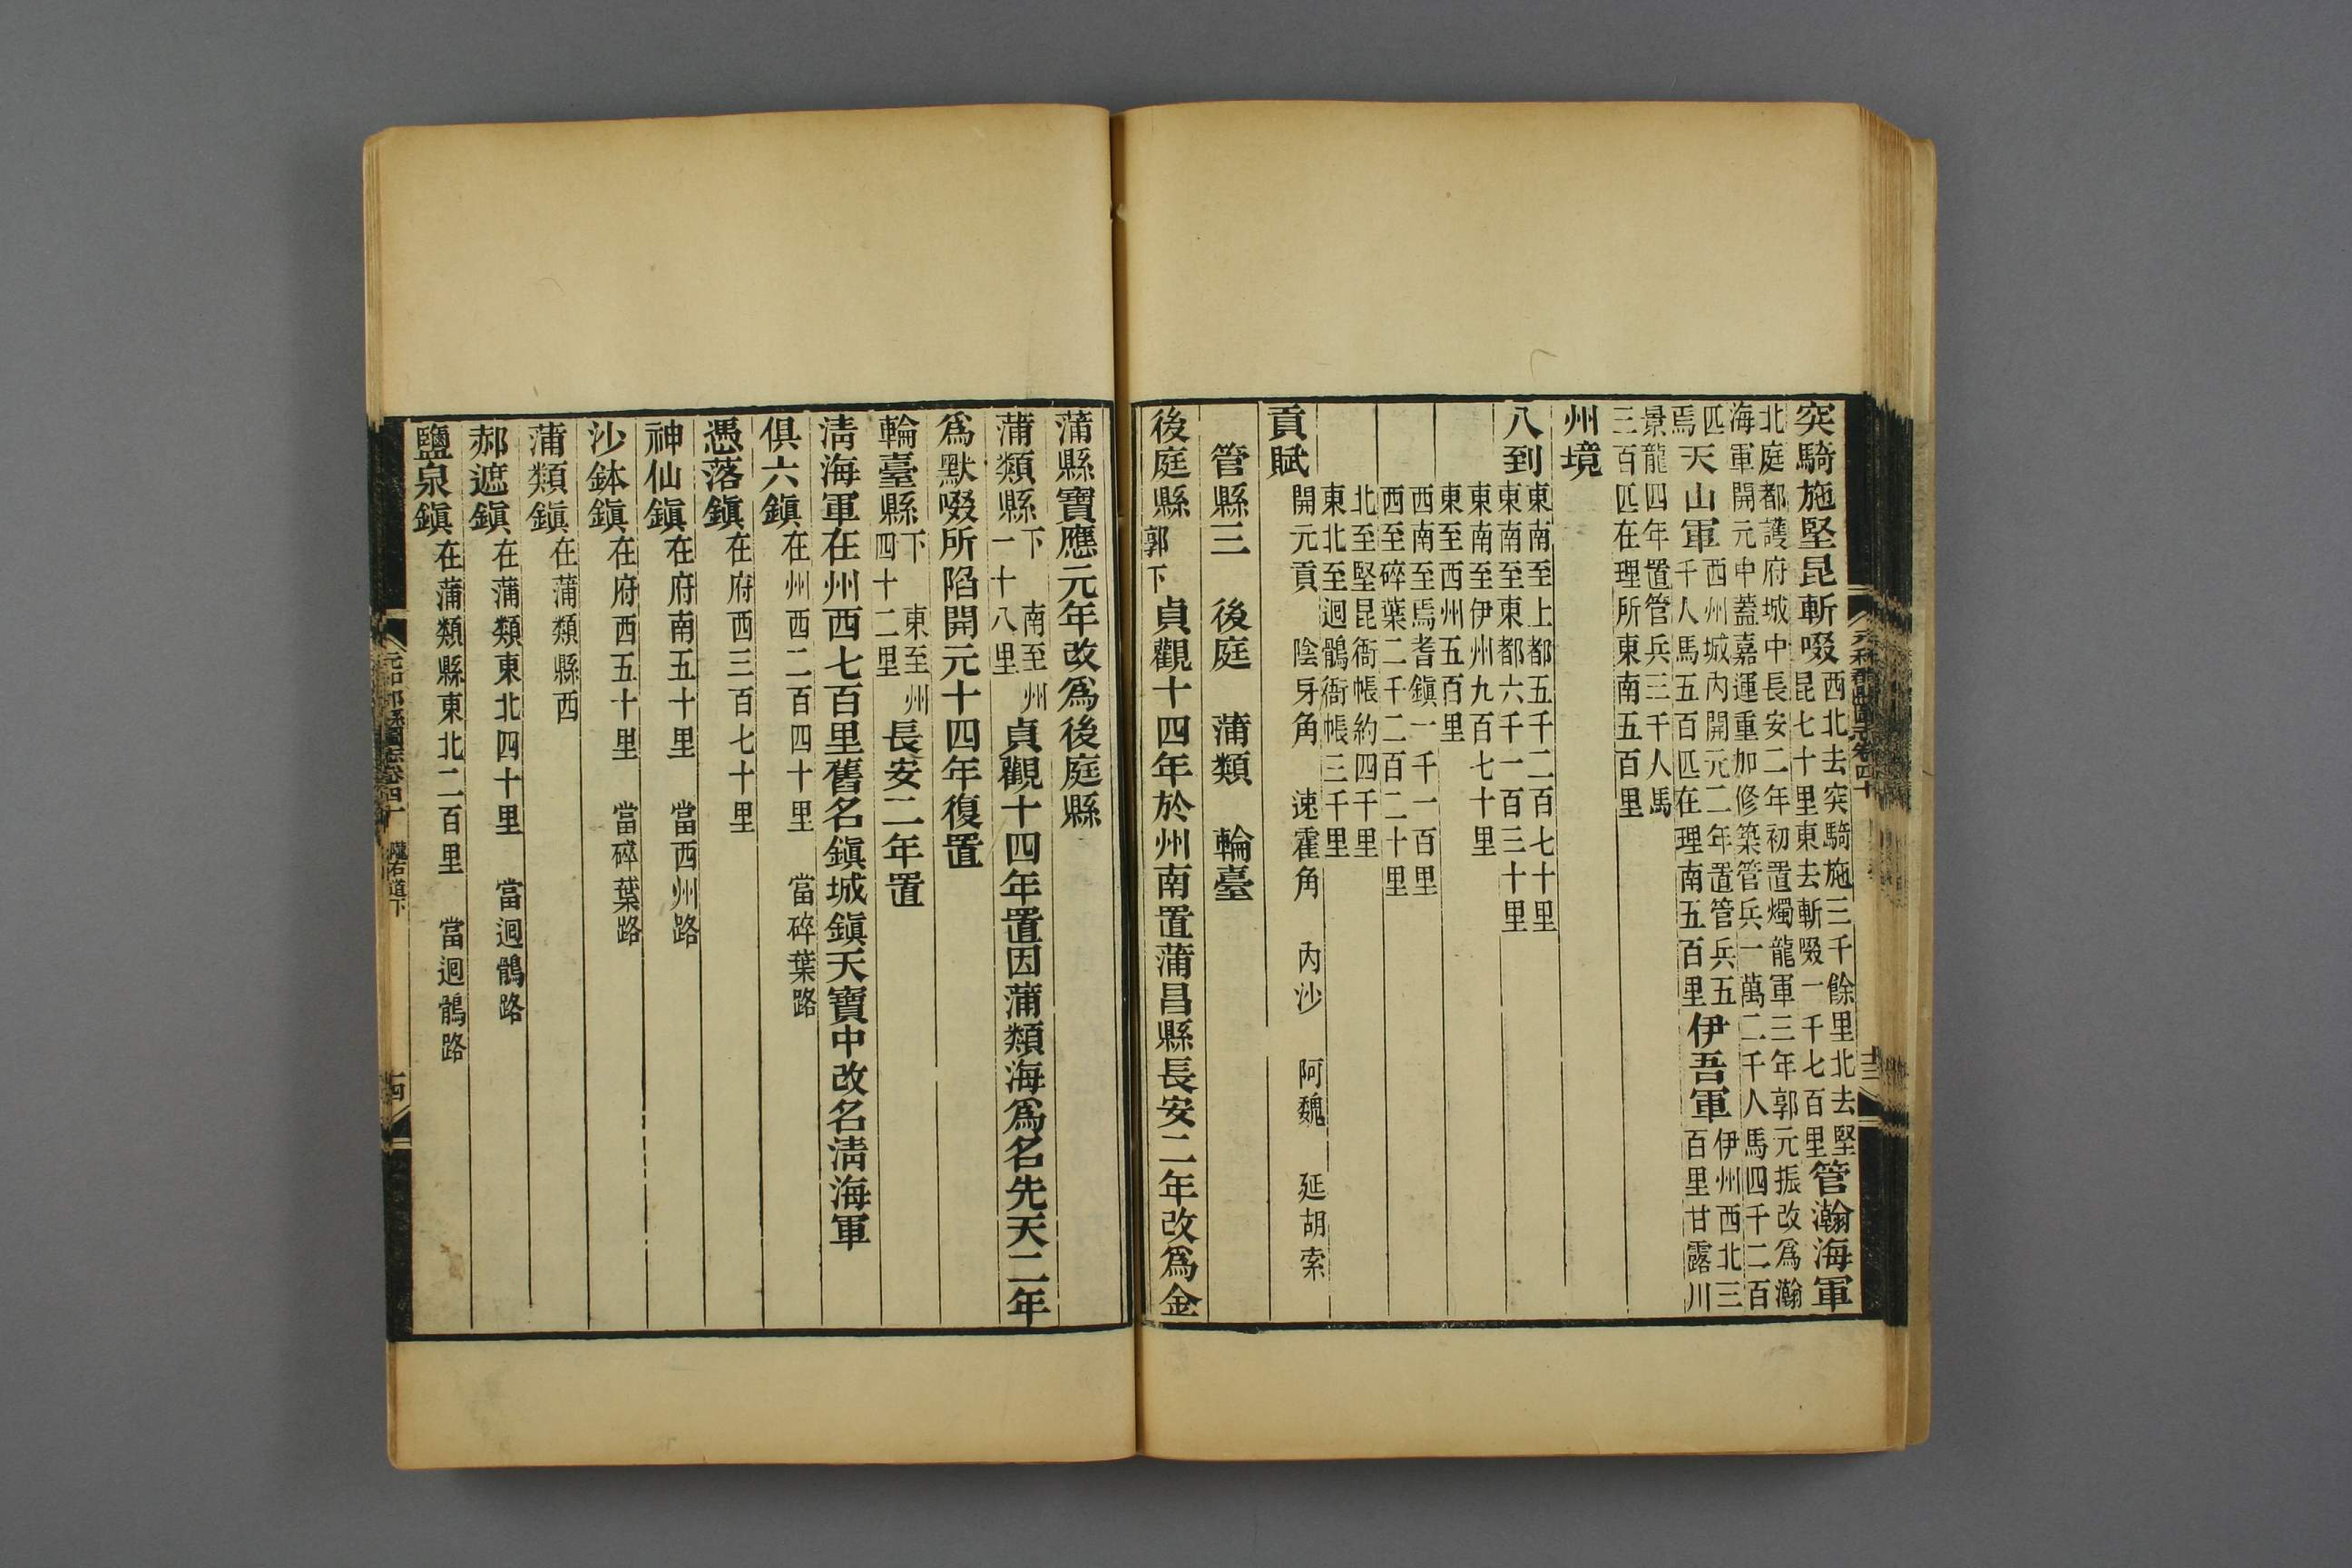 突騎施堅昆斬啜西北去突騎施三千餘里北去堅昆七十里東去斬啜一千七百里管瀚海軍
北庭都護府城中長安二年初置燭龍軍三年郭元振改爲瀚
海軍開元中蓋嘉運重加修築管兵一萬二千人馬四千二百
匹焉天山軍西州城內開元二年置管兵五千人馬五百匹在理南五百里伊吾軍伊州西北三百里甘露川
景龍四年置管兵三千人馬
三百匹在理所東南五百里
州境
八到東南至上都五千二百七十里
東南至東都六千一百三十里
東南至伊州九百七十里
東至西州五百里
西南至焉耆鎮一千一百里
西至碎葉二千二百二十里
北至堅昆衙帳約四千里
東北至迴鶻衙帳三千里
貢賦開元貢 陰牙角 速霍角 內沙 阿魏 延胡索
管縣三 後庭 蒲類 輪臺
後庭縣郭下貞觀十四年於州南置蒲昌縣長安二年改爲金
蒲縣寶應元年改爲後庭縣
蒲類縣下 南至州一十八里貞觀十四年置因蒲類海爲名先天二年
爲默啜所陷開元十四年復置
輪臺縣下 東至州四十二里長安二年置
清海軍在州西七百里舊名鎮城鎮天寶中改名清海軍
俱六鎮在州西二百四十里 當碎葉路
憑落鎮在府西三百七十里
神仙鎮在府南五十里 當西州路
沙鉢鎮在府西五十里 當碎葉路
蒲類鎮在蒲類縣西
郝遮鎮在蒲類東北四十里 當迴鶻路
鹽泉鎮在蒲類縣東北二百里 當迴鶻路
元和郡縣圖志卷四十 隴右道下 十四